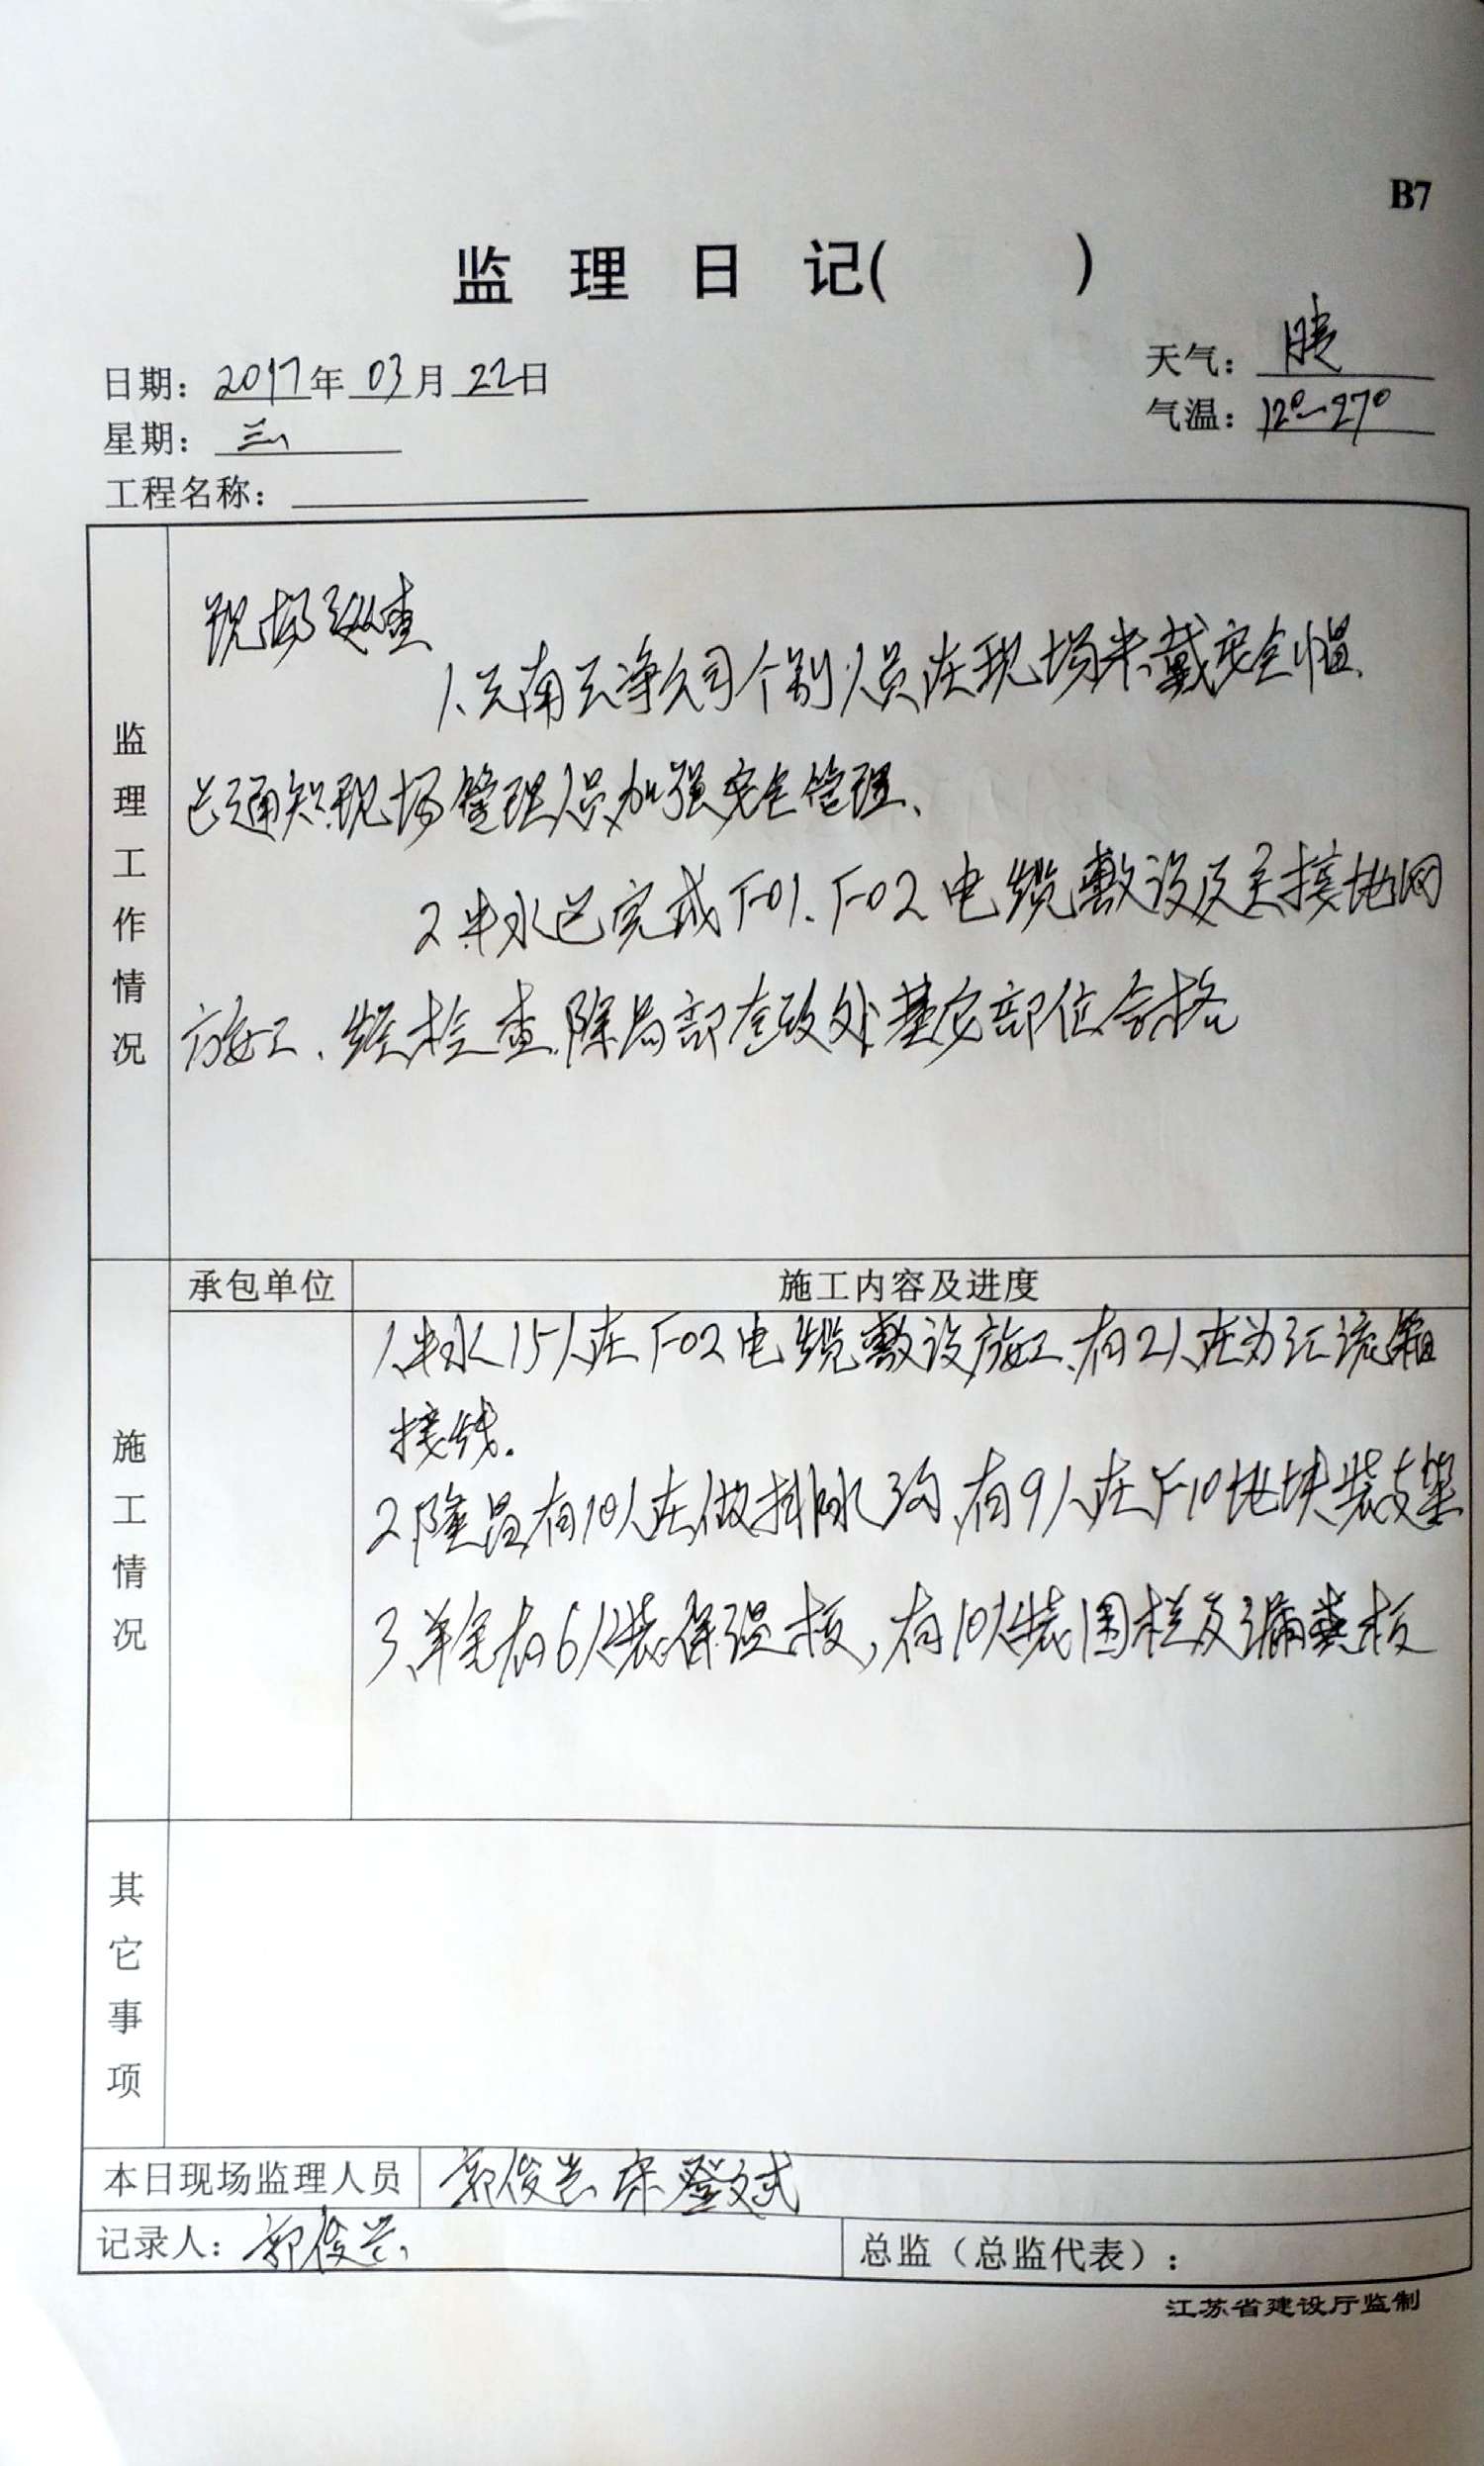 B7
监 理 日 记( )
日期: 2017年 03月 22日
天气: 晴
星期: 三
气温: 12°~27°
工程名称:
监理工作情况
现场巡查
1、云南云净公司个别人员在现场未戴安全帽
已通知现场管理人员加强安全管理、
2、中水已完成F01、F02电缆敷设及主接地网
施工、经检查、除局部整改处其它部位合格
承包单位
施工内容及进度
施工情况
1、中水15人在F02电缆敷设施工、有2人在为汇流箱
接线.
2、隆昌有10人在做排水沟、有9人在F10地块装支架
3、羊舍有6人装保温板,有10人装围栏及漏粪板
其它事项
本日现场监理人员 郭俊芸 登斌
记录人: 郭俊芸
总监(总监代表):
江苏省建设厅监制